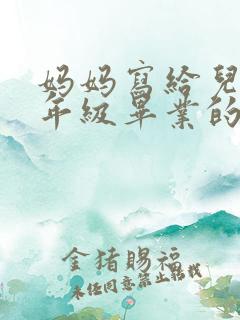 妈妈寫給兒
年級畢業的
金猪賜福
未经同意禁止轉載